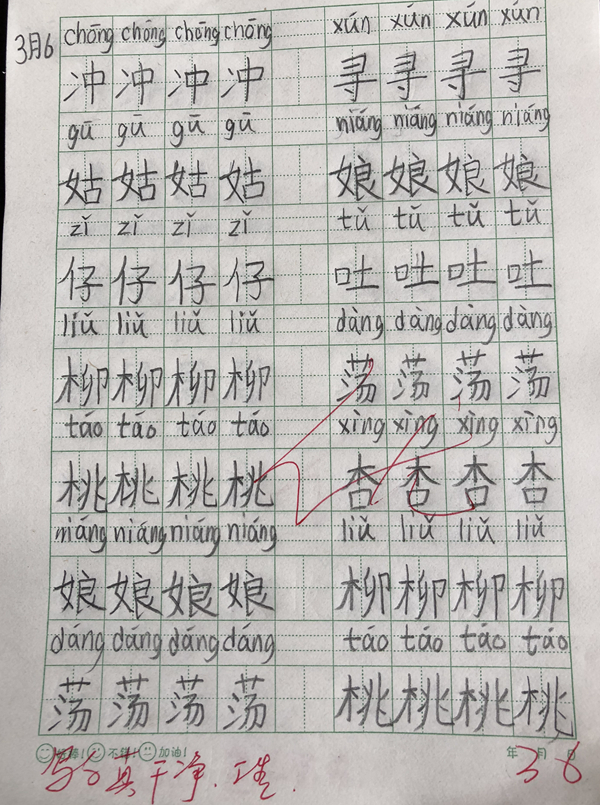 3月6
chōng chōng chōng chōng xún xún xún xún
冲 冲 冲 冲 寻 寻 寻 寻
gū gū gū gū niáng niáng niáng niáng
姑 姑 姑 姑 娘 娘 娘 娘
zǐ zǐ zǐ zǐ tǔ tǔ tǔ tǔ
仔 仔 仔 仔 吐 吐 吐 吐
liǔ liǔ liǔ liǔ dàng dàng dàng dàng
柳 柳 柳 柳 荡 荡 荡 荡
táo táo táo táo xìng xìng xìng xìng
桃 桃 桃 桃 杏 杏 杏 杏
niáng niáng niáng niáng liǔ liǔ liǔ liǔ
娘 娘 娘 娘 柳 柳 柳 柳
dáng dáng dáng dáng táo táo táo táo
荡 荡 荡 荡 桃 桃 桃 桃
不错! 加油! 年 月 日
真干净、 3 6